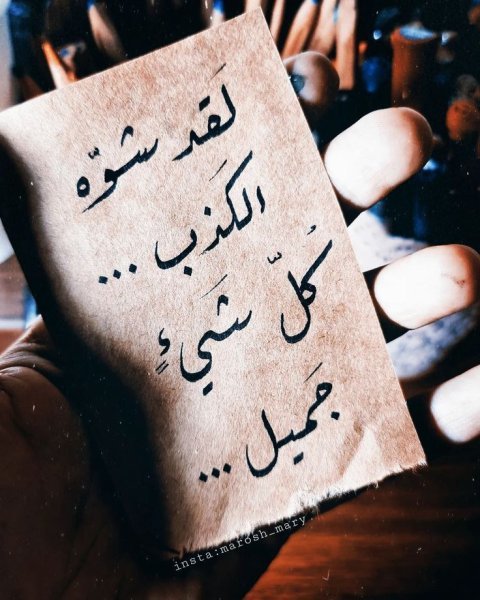 لَقد شوّه
الكَذب ...
كُلّ شَيءٍ
جَميل ...
insta:marosh_mary